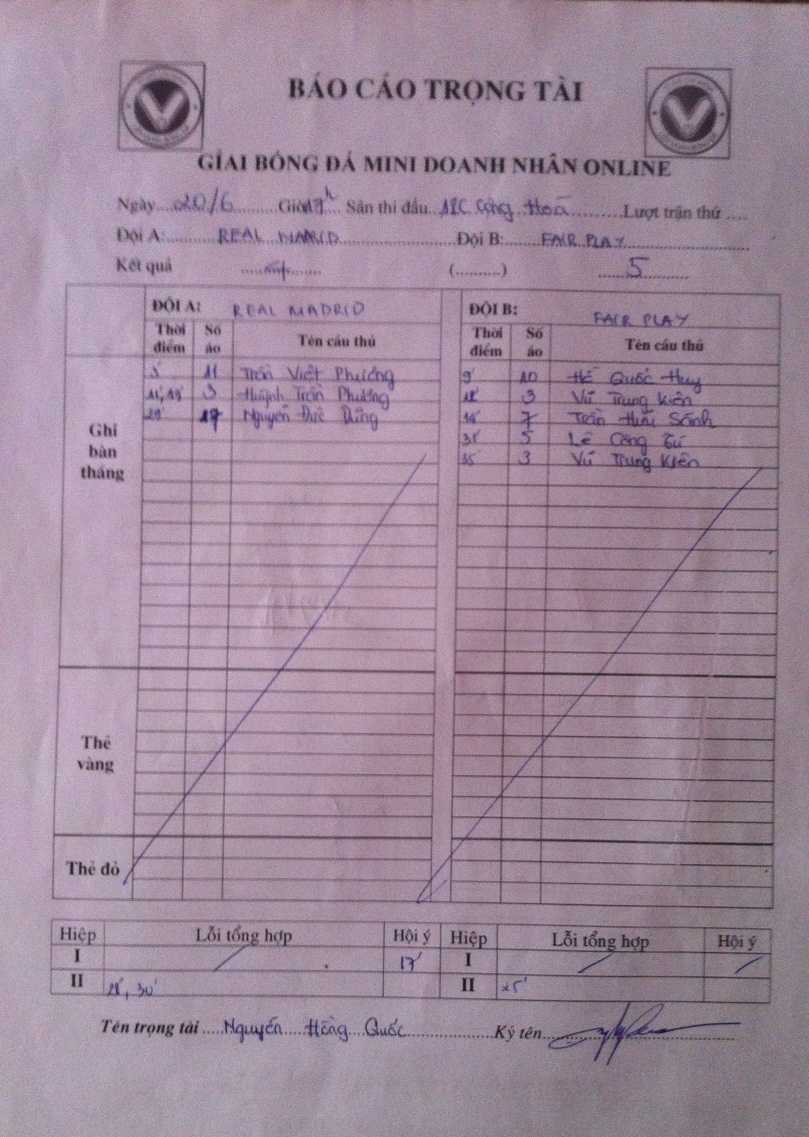 BÁO CÁO TRỌNG TÀI
GIẢI BÓNG ĐÁ MINI DOANH NHÂN ONLINE
Ngày....20/6.........Giờ19h... Sân thi đấu...12C Cộng Hoà..........Lượt trận thứ ....
Đội A:.........REAL MADRID.....................Đội B:.......FAIR PLAY........................
Kết quả (..........) 5
ĐỘI A: REAL MADRID ĐỘI B: FAIR PLAY
Thời điểm Số áo Tên cầu thủ Thời điểm Số áo Tên cầu thủ
Ghi bàn thắng
11 Trần Viết Phương 9' 10 Hồ Quốc Huy
3 Huỳnh Trần Phương 3 Vũ Trung Kiên
17 Nguyễn Đức Dũng 7 Trần Hữu Sánh
31' 5 Lê Công Tú
35 3 Vũ Trung Kiên
Thẻ vàng
Thẻ đỏ
Hiệp Lỗi tổng hợp Hội ý Hiệp Lỗi tổng hợp Hội ý
I 17' I
II 30' II 25'
Tên trọng tài.....Nguyễn Hồng Quốc.................Ký tên